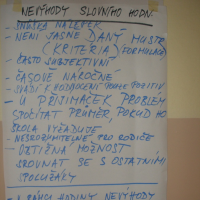 NEVÝHODY SLOVNÍHO HODN.
- SNŮŠKA NÁLEPEK
- NENÍ JASNĚ DANÝ MUSTR
(KRITÉRIA) FORMULACE
- ČASTO SUBJEKTIVNÍ
- ČASOVĚ NÁROČNÉ
- SVÁDÍ K HODNOCENÍ POUZE POZITIV
- U PŘIJÍMAČEK PROBLÉM
SPOČÍTAT PRŮMĚR, POKUD HO
ŠKOLA VYŽADUJE
- NESROZUMITELNÉ PRO RODIČE
- OBTÍŽNÁ MOŽNOST
SROVNAT SE S OSTATNÍMI
SPOLUŽÁKY
HODINY NEVÝHODY